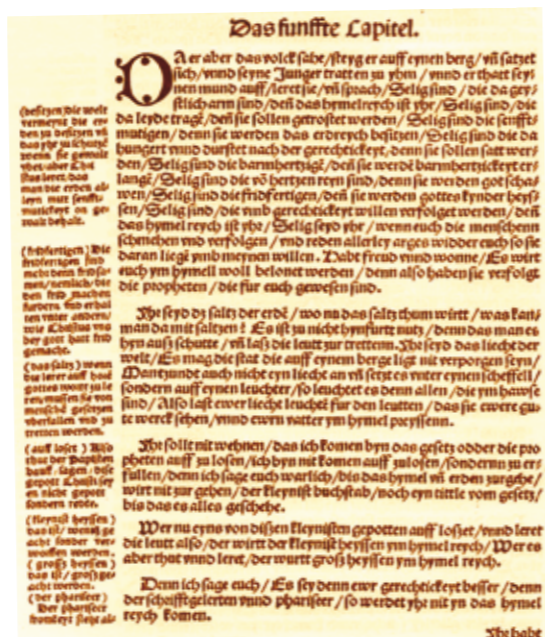 Das funffte Capitel.
DA er aber das volck sahe/steyg er auff eynen berg/vñ satzet
sich/vnnd seyne Junger tratten zu yhm/vnnd er thatt sey-
nen mund auff/leret sie/vñ sprach/Selig sind/die da gey-
stlich arm sind/deñ das hymelreych ist yhr/Selig sind/die
da leyde tragē/deñ sie sollen getrostet werden/Selig sind die senfft-
mutigen/denn sie werden das erdreych besitzen/Selig sind die da
hungert vnnd durstet nach der gerechtickeyt, denn sie sollen satt wer-
den/Selig sind die barmhertzigē/deñ sie werdē barmhertzickeyt er-
langē/Selig sind die vō hertzen reyn sind/denn sie werden got scha-
wen/Selig sind die fridfertigen/deñ sie werden gottes kynder heys-
sen/Selig sind/die vmb gerechtickeyt willen verfolget werden/deñ
das hymel reych ist yhr/Selig seyd yhr/wenn euch die menschenn
schmehen vnd verfolgen/vnd reden allerley arges widder euch so sie
daran liegē vmb meynen willen. Habt freud vnnd wonne/Es wirt
euch ym hymell woll belonet werden/denn also haben sie verfolgt
die propheten/die fur euch gewesen sind.
Yhr seyd dz saltz der erdē/wo nu das saltz thum wirtt/was kan-
man da mit saltzen? Es ist zu nicht hynfurtt nutz/denn das man es
hyn aus schutte/vñ laß die leutt zur trettenn. Yhr seyd das liecht der
welt/Es mag die stat die auff eynem berge ligt nit verporgen seyn/
Man tzundt auch nicht eyn liecht an vñ setzt es vnter eynen scheffell/
sondern auff eynen leuchter/so leuchtet es denn allen/die ym hawse
sind/Also last ewer liecht leuchtē fur den leutten/das sie ewre gu-
te werck sehen/vnnd ewrn vatter ym hymel preyssenn.
Yhr sollt nit wehnen/das ich komen byn das gesetz odder die pro
pheten auff zu losen/ich byn nit komen auff zulosen/sondernn zu er-
fullen/denn ich sage euch warlich/bis das hymel vñ erden zurgehe/
wirt nit zur gehen/der kleynist buchstab/noch eyn tittle vom gesetz/
bis das es alles geschehe.
Wer nu eyns von dißen kleynisten gepotten auff loßet/vnnd leret
die leutt also/der wirtt der kleynist heyssen ym hymel reych/Wer es
aber thut vnnd leret/der wurtt groß heyssen ym hymel reych.
Denn ich sage euch/Es sey denn ewr gerechtickeyt besser/denn
der schrifftgelerten vnnd phariseer/so werdet yhr nit yn das hymel
reych komen.
Yhr habt
(besitzen) die welt
vermeynt die er-
den zu besitzen vñ
das yhr zu schutzē
wenn sie gewalt
vbet. aber Chri
stus leret. das
man die erden al-
leyn mit senfft-
mutickeyt on ge-
walt behalt.
(fridfertigen) Die
fridfertigen sind
mehr denn fridsa-
men/nemlich/die
den frid machen
furdern vnd erhal
ten vnter andern/
wie Christus vns
der gott hatt frid
gemacht.
(das saltz) wenn
die lerer auff ho̊rē
gottes wort zu le
ren/mussen sie von
menschē gesetzen
vberfallen vnd zu
tretten werden.
(auff loset) Also
thut der Papisten
hauff/sagen/dise
gepott Christi sey
en nicht gepott
sondern rethe.
(kleynist heyssen)
das ist/wenig ge
acht sonder ver
worffen werden.
(groß heyssen)
das ist/groß ge-
acht werden.
(der phariseer)
Der phariseer
frumkeyt stehe al-